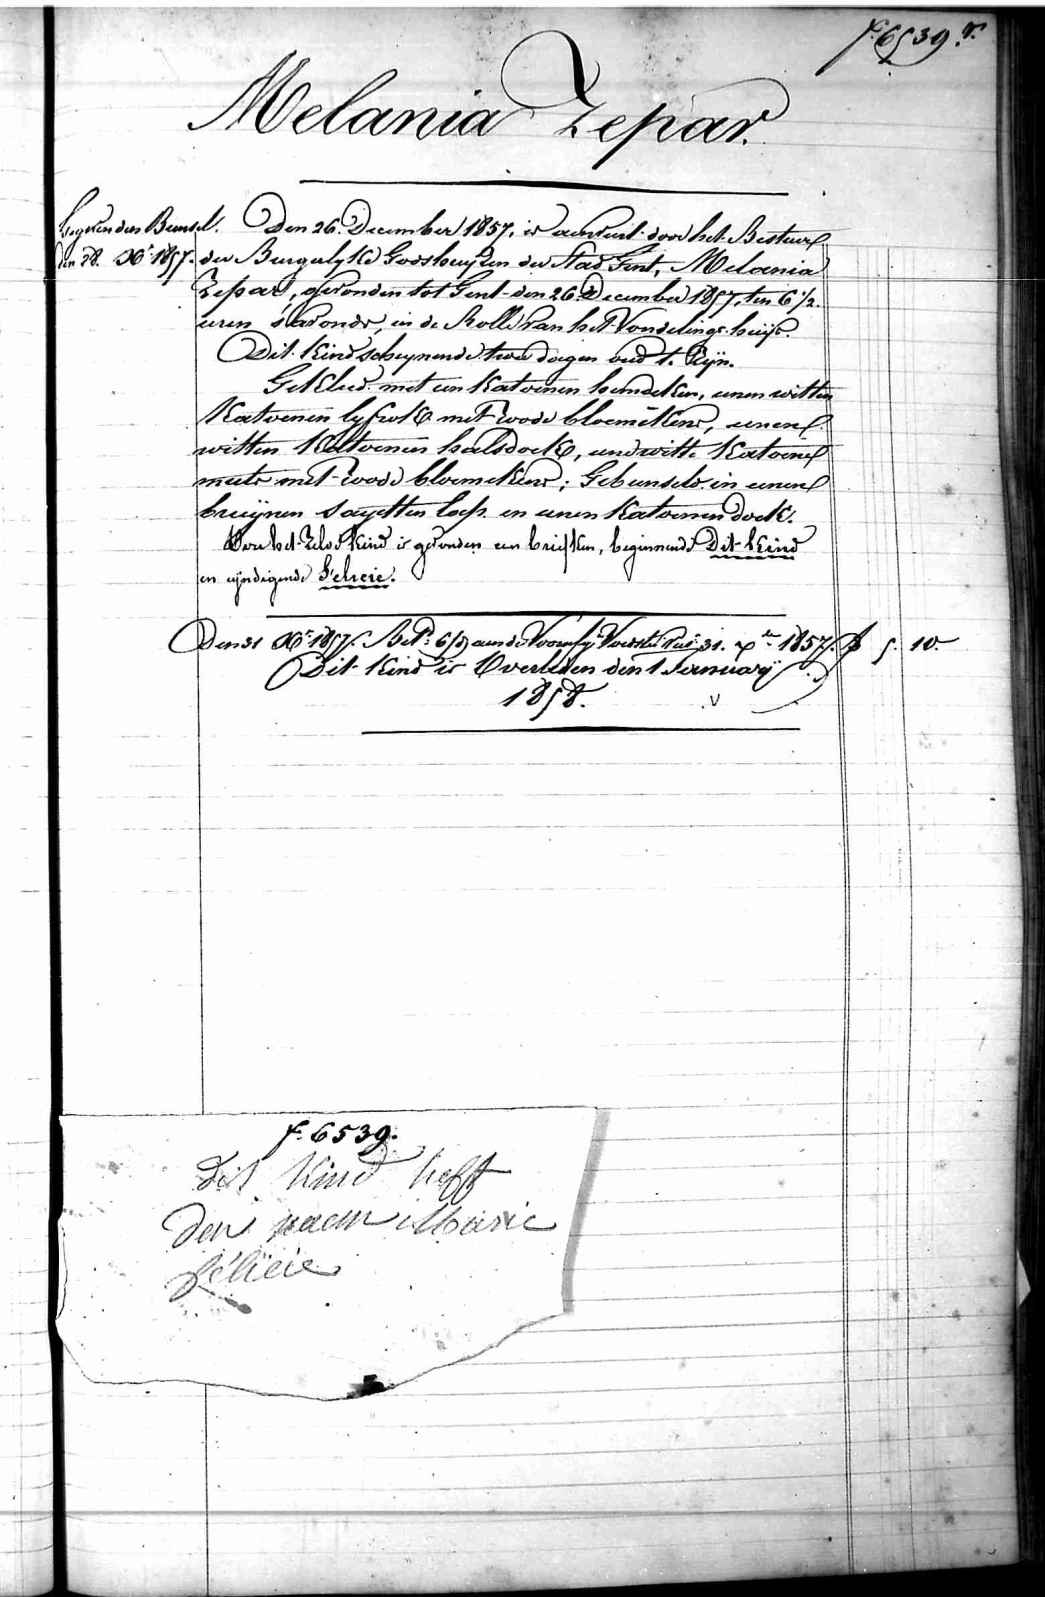 f. 6539. r.
Melania Zepar.
Gegeven den Bunsel.
den 28. Xb. 1857.
Den 26. December 1857. is aenveird door het Bestuer
der Burgelyke Godshuyzen der Stad Gent, Melania
Zepar, gevonden tot Gent den 26. December 1857, ten 6 1/2.
uren s'avonds, in de Rolle van het Vondelings huys.
Dit Kind scheynende twee dagen oud t. Zyn.
Gekleed met een Katoenen hemdeken, eenen witten
Katoenen lyfrok met roode bloemekens, eenen
witten Katoenen halsdoek, een witte Katoene
muts met roode bloemekens; Gebunseld in eenen
bruynen sayetten lap en eenen Katoenen doek.
Van het Zelve Kind is gevonden een briefken, beginnende Dit Kind
en eyndigende Felicie.
Den 31 Xb. 1857. Bet. 6/d aen de Voorsz. Voedst. 31. X 1857. f 5. 10.
Dit Kind is Overleden den 1 January
1858.
f. 6539.
dit kind heft
den naem Marie
félicie